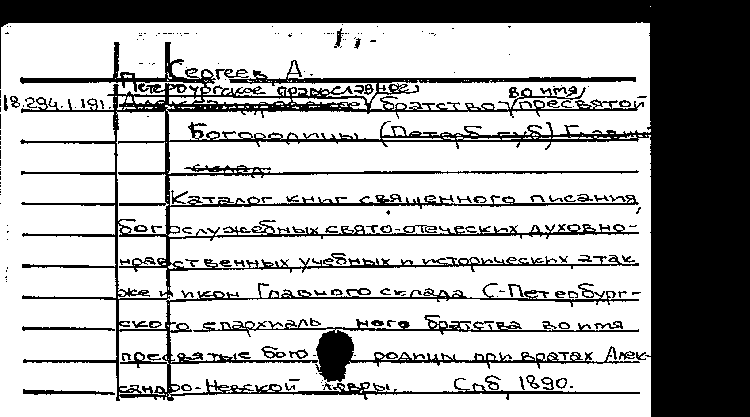 Сергеев, А.
Петербургское православное
во имя
18.294.1.191. Александровское братство пресвятой
Богородицы (Петерб. губ) Главный
склад.
Каталог книг священного писания,
богослужебных, свято-отеческих, духовно-
нравственных, учебных и исторических, а так
же и икон Главного склада С.-Петербург-
ского епархиаль него братства во имя
пресвятые бого родицы при вратах Алек-
сандро-Невской лавры. Спб, 1890.